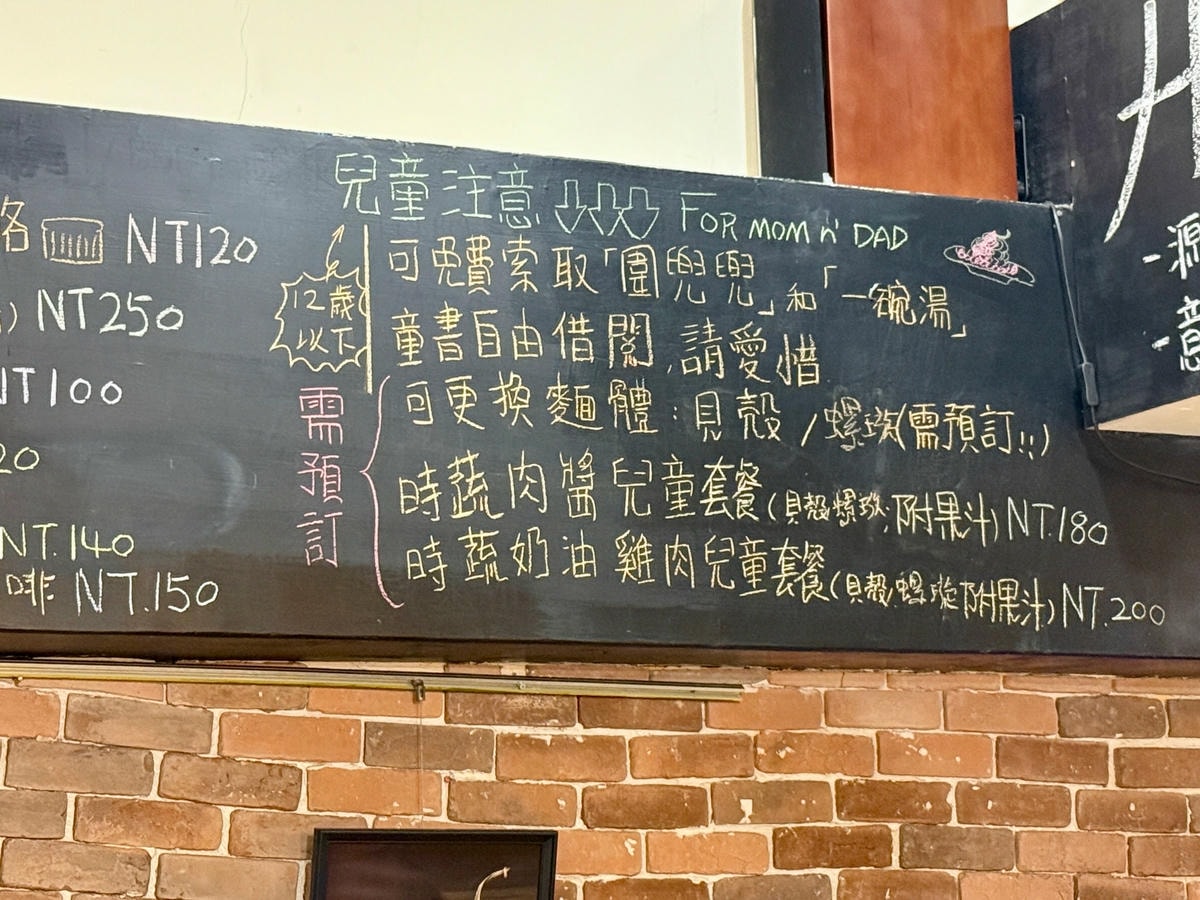 兒童注意 FOR MOM n' DAD
12歲以下
可免費索取「圍兜兜」和「一碗湯」
童書自由借閱,請愛惜
需預訂
可更換麵體:貝殼/螺旋(需預訂!!)
時蔬肉醬兒童套餐(貝殼.螺旋,附果汁)NT.180
時蔬奶油雞肉兒童套餐(貝殼.螺旋,附果汁)NT.200
格 NT120
) NT250
NT100
20
NT.140
啡 NT.150
-
-意